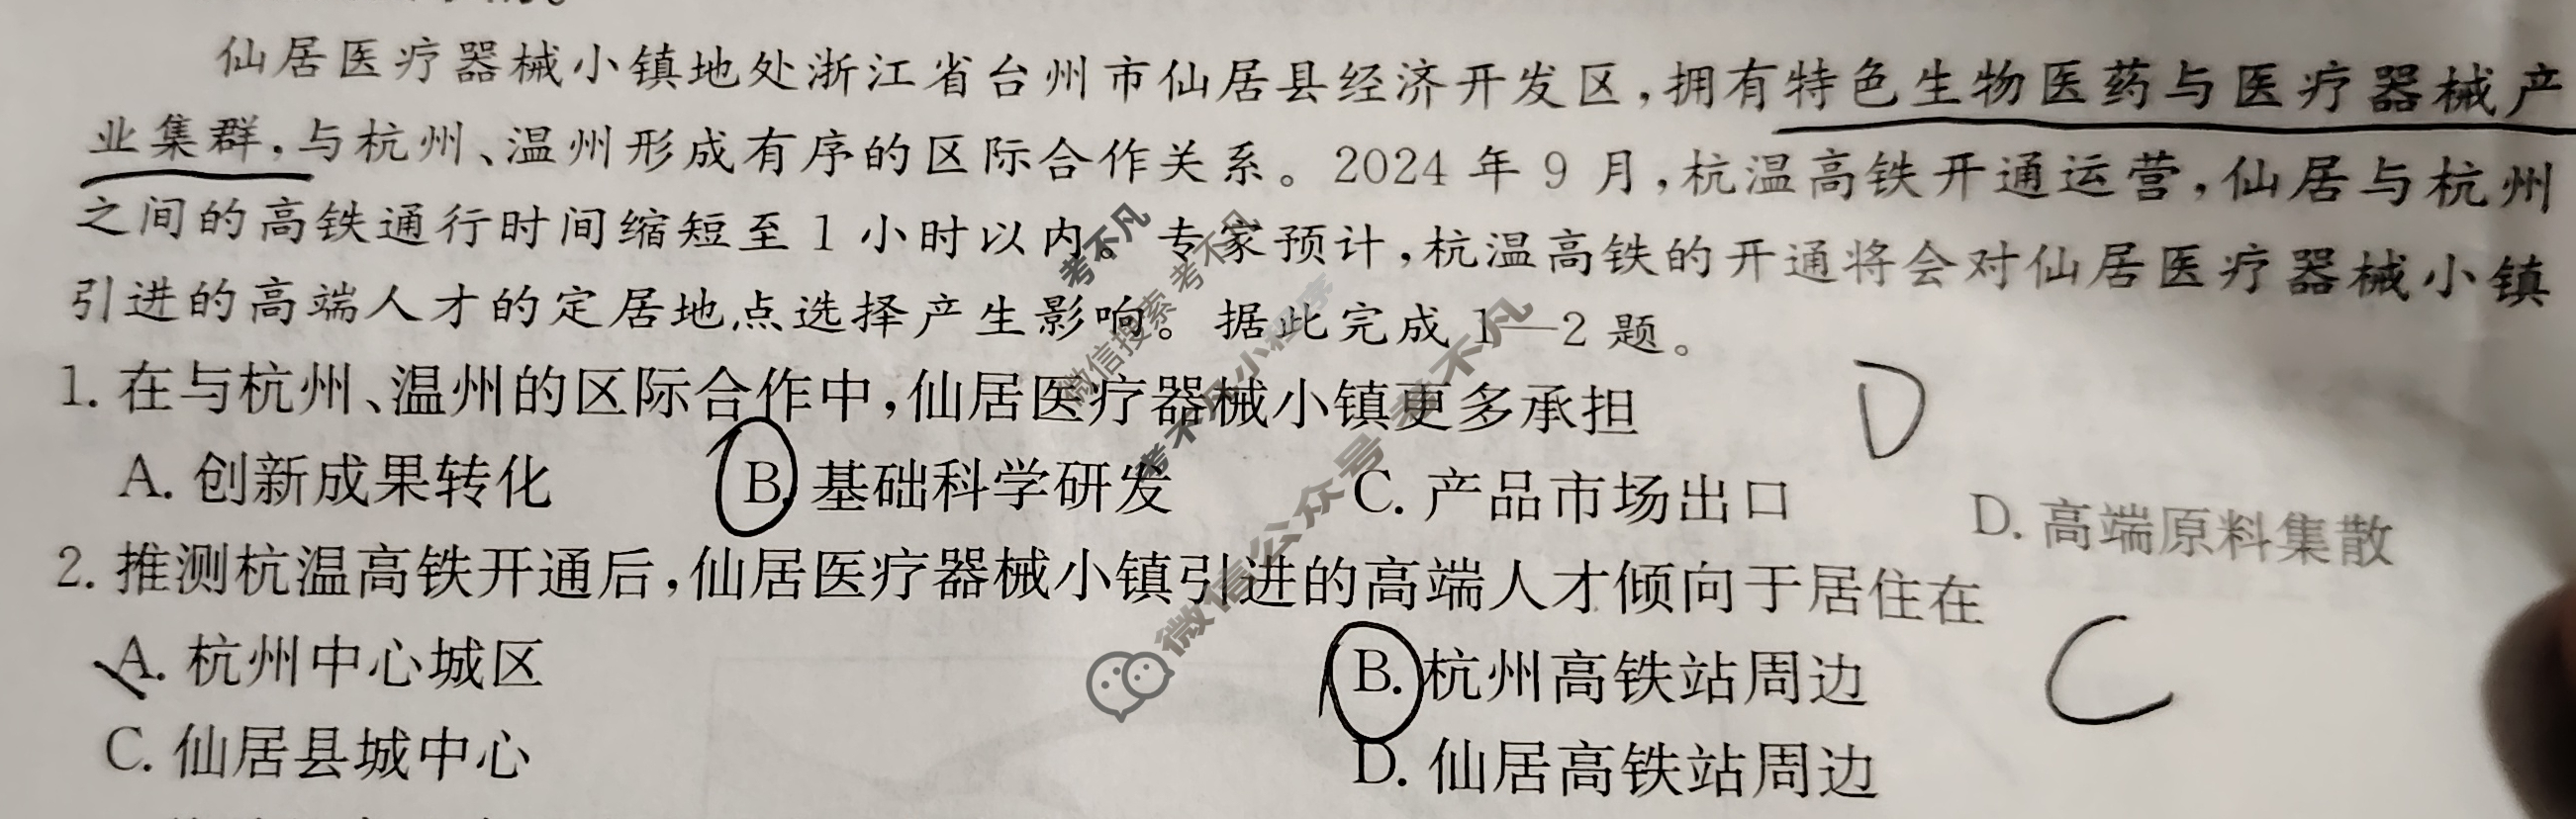 仙居医疗器械小镇地处浙江省台州市仙居县经济开发区,拥有特色生物医药与医疗器械产
业集群,与杭州、温州形成有序的区际合作关系。2024年9月,杭温高铁开通运营,仙居与杭州
之间的高铁通行时间缩短至1小时以内。专家预计,杭温高铁的开通将会对仙居医疗器械小镇
引进的高端人才的定居地点选择产生影响。据此完成1—2题。
1. 在与杭州、温州的区际合作中,仙居医疗器械小镇更多承担
D
A. 创新成果转化 B. 基础科学研发 C. 产品市场出口 D. 高端原料集散
2. 推测杭温高铁开通后,仙居医疗器械小镇引进的高端人才倾向于居住在
A. 杭州中心城区 B. 杭州高铁站周边
C
C. 仙居县城中心 D. 仙居高铁站周边
考不凡
微信搜索 考不凡
考不凡小程序
微信公众号 考不凡